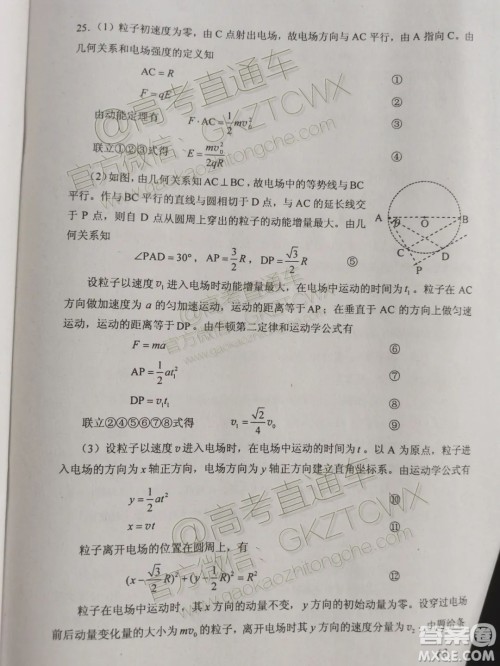 25.(1)粒子初速度为零,由 C 点射出电场,故电场方向与 AC 平行,由 A 指向 C。由
几何关系和电场强度的定义知
AC = R ①
F = qE ②
由动能定理有 F·AC = 1/2 mv₀² ③
联立①②③式得 E = mv₀²/2qR ④
(2)如图,由几何关系知 AC⊥BC,故电场中的等势线与 BC
平行。作与 BC 平行的直线与圆相切于 D 点,与 AC 的延长线交
于 P 点,则自 D 点从圆周上穿出的粒子的动能增量最大。由几
何关系知
∠PAD = 30°,AP = 3/2 R,DP = √3/2 R ⑤
A O B
C D
P
设粒子以速度 v₁ 进入电场时动能增量最大,在电场中运动的时间为 t₁。粒子在 AC
方向做加速度为 a 的匀加速运动,运动的距离等于 AP;在垂直于 AC 的方向上做匀速
运动,运动的距离等于 DP。由牛顿第二定律和运动学公式有
F = ma ⑥
AP = 1/2 at₁² ⑦
DP = v₁t₁ ⑧
联立②④⑤⑥⑦⑧式得 v₁ = √2/4 v₀ ⑨
(3)设粒子以速度 v 进入电场时,在电场中运动的时间为 t。以 A 为原点,粒子进
入电场的方向为 x 轴正方向,电场方向为 y 轴正方向建立直角坐标系。由运动学公式有
y = 1/2 at² ⑩
x = vt ⑪
粒子离开电场的位置在圆周上,有
(x − √3/2 R)² + (y − 1/2 R)² = R² ⑫
粒子在电场中运动时,其 x 方向的动量不变,y 方向的初始动量为零。设穿过电场
前后动量变化量的大小为 mv₀ 的粒子,离开电场时其 y 方向的速度分量为 v₂,由题给条
@高考直通车
官方微信:GKZTCWX
www.gaokaozhitongche.com
@高考直通车
官方微信:GKZTCWX
www.gaokaozhitongche.com
@高考直通车
官方微信:GKZTCWX
www.gaokaozhitongche.com
答案圈
MXQE.COM